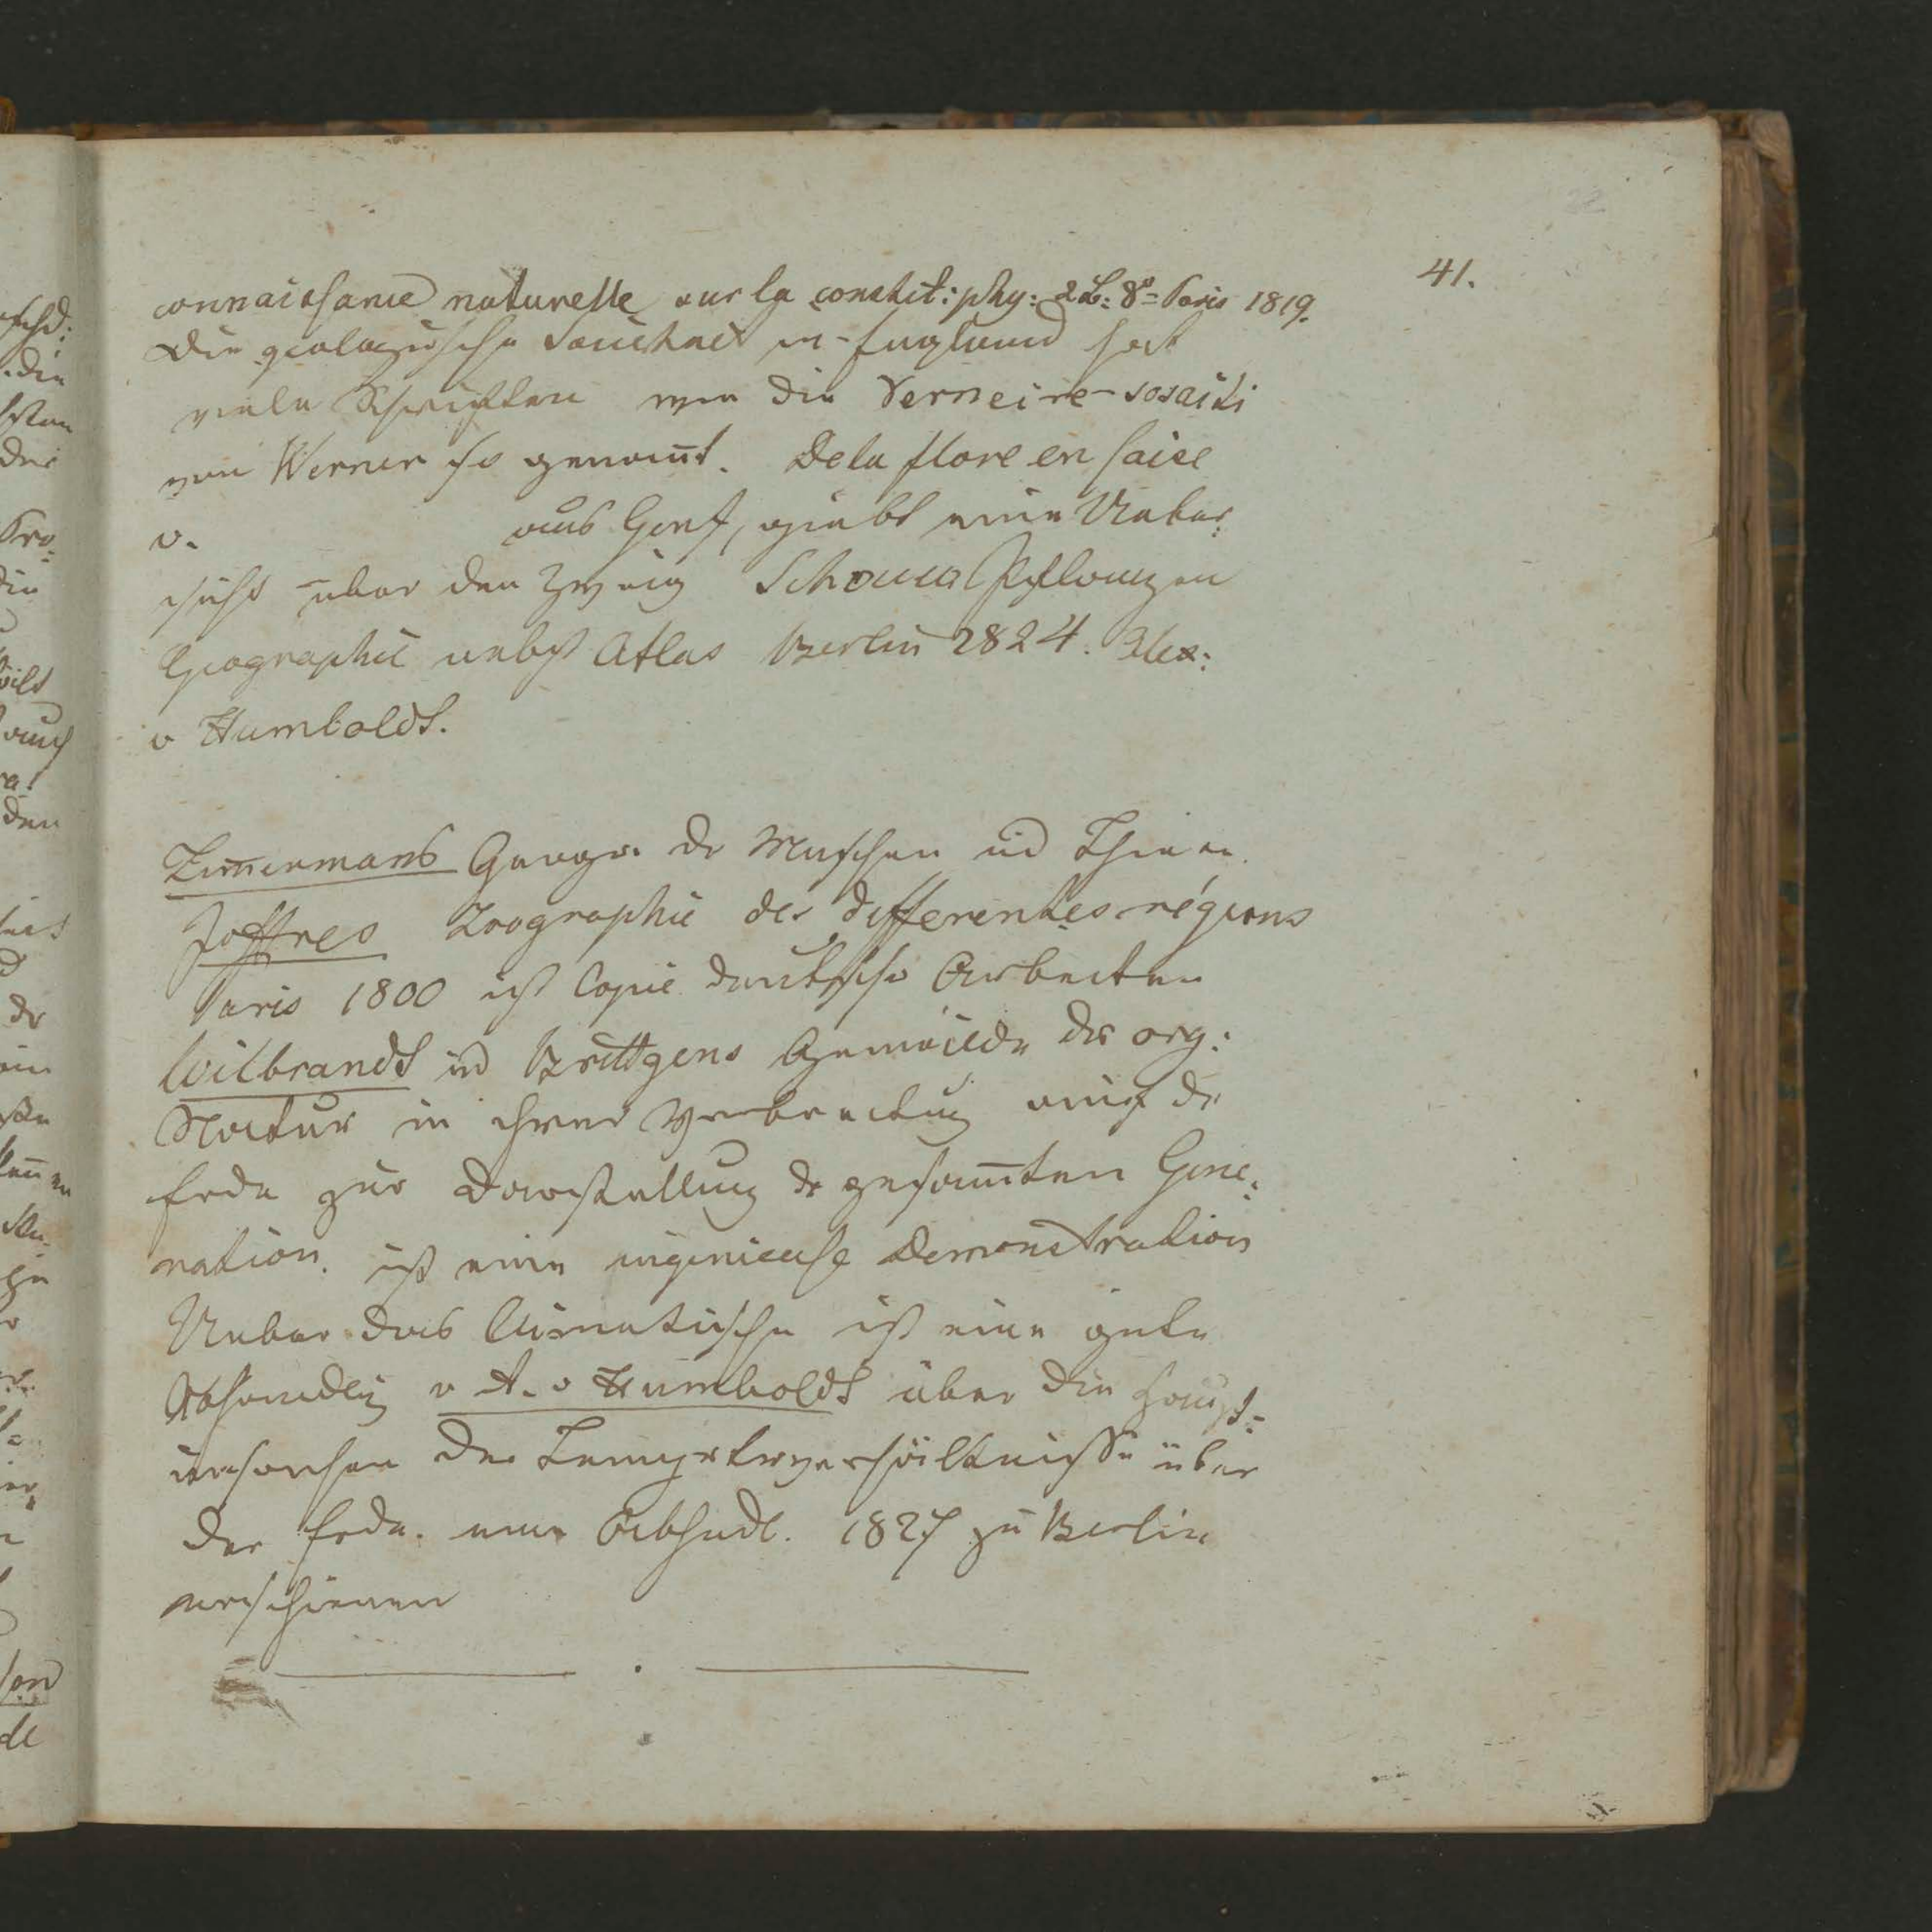 41.
connaissance naturelle sur la constit: phy: 2 B: 8° Paris 1819.
Die geologische Soucitaet in England hat
viele Schriften von die Verneire-sosaiti
von Werner so genañt. De la flore en saise
v. aus Genf, giebt eine Ueber:
sicht ueber den Zweig Schouw Pflanzen
Geographie nebst Atlas Berlin 2824. Alex:
v Humboldt.
Zim̄ermans Geogr. dr Menschen ud Thiere.
Joffres Zoographie des differentes régions
Paris 1800 ist Copie deutscher Arbeiten
Wilbrandt ud Brittgens Gemaelde der org:
Natur in ihrer Verbreitug auf dr
Erde zur Darstellung dr gesam̄ten Gene:
ration. ist eine ingenieuse Demonstration
Ueber das Climatische ist eine gute
Abhandlg v A. v Humboldt über die Haupt-
ursachen der Temprtrverhältnisse über
der Erde. eine Abhndl. 1827 zu Berlin
erschienen